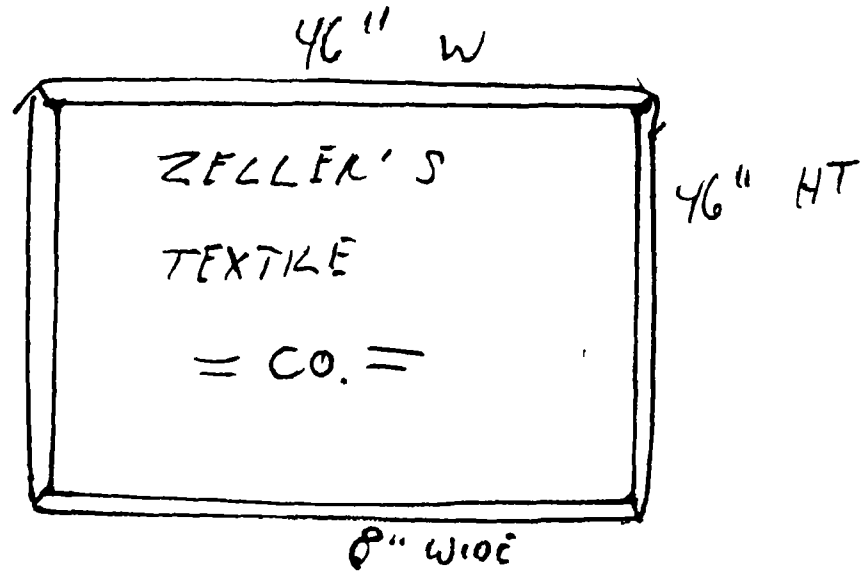 46" W
ZELLER'S
TEXTILE
= CO. =
46" HT
8" WIDE